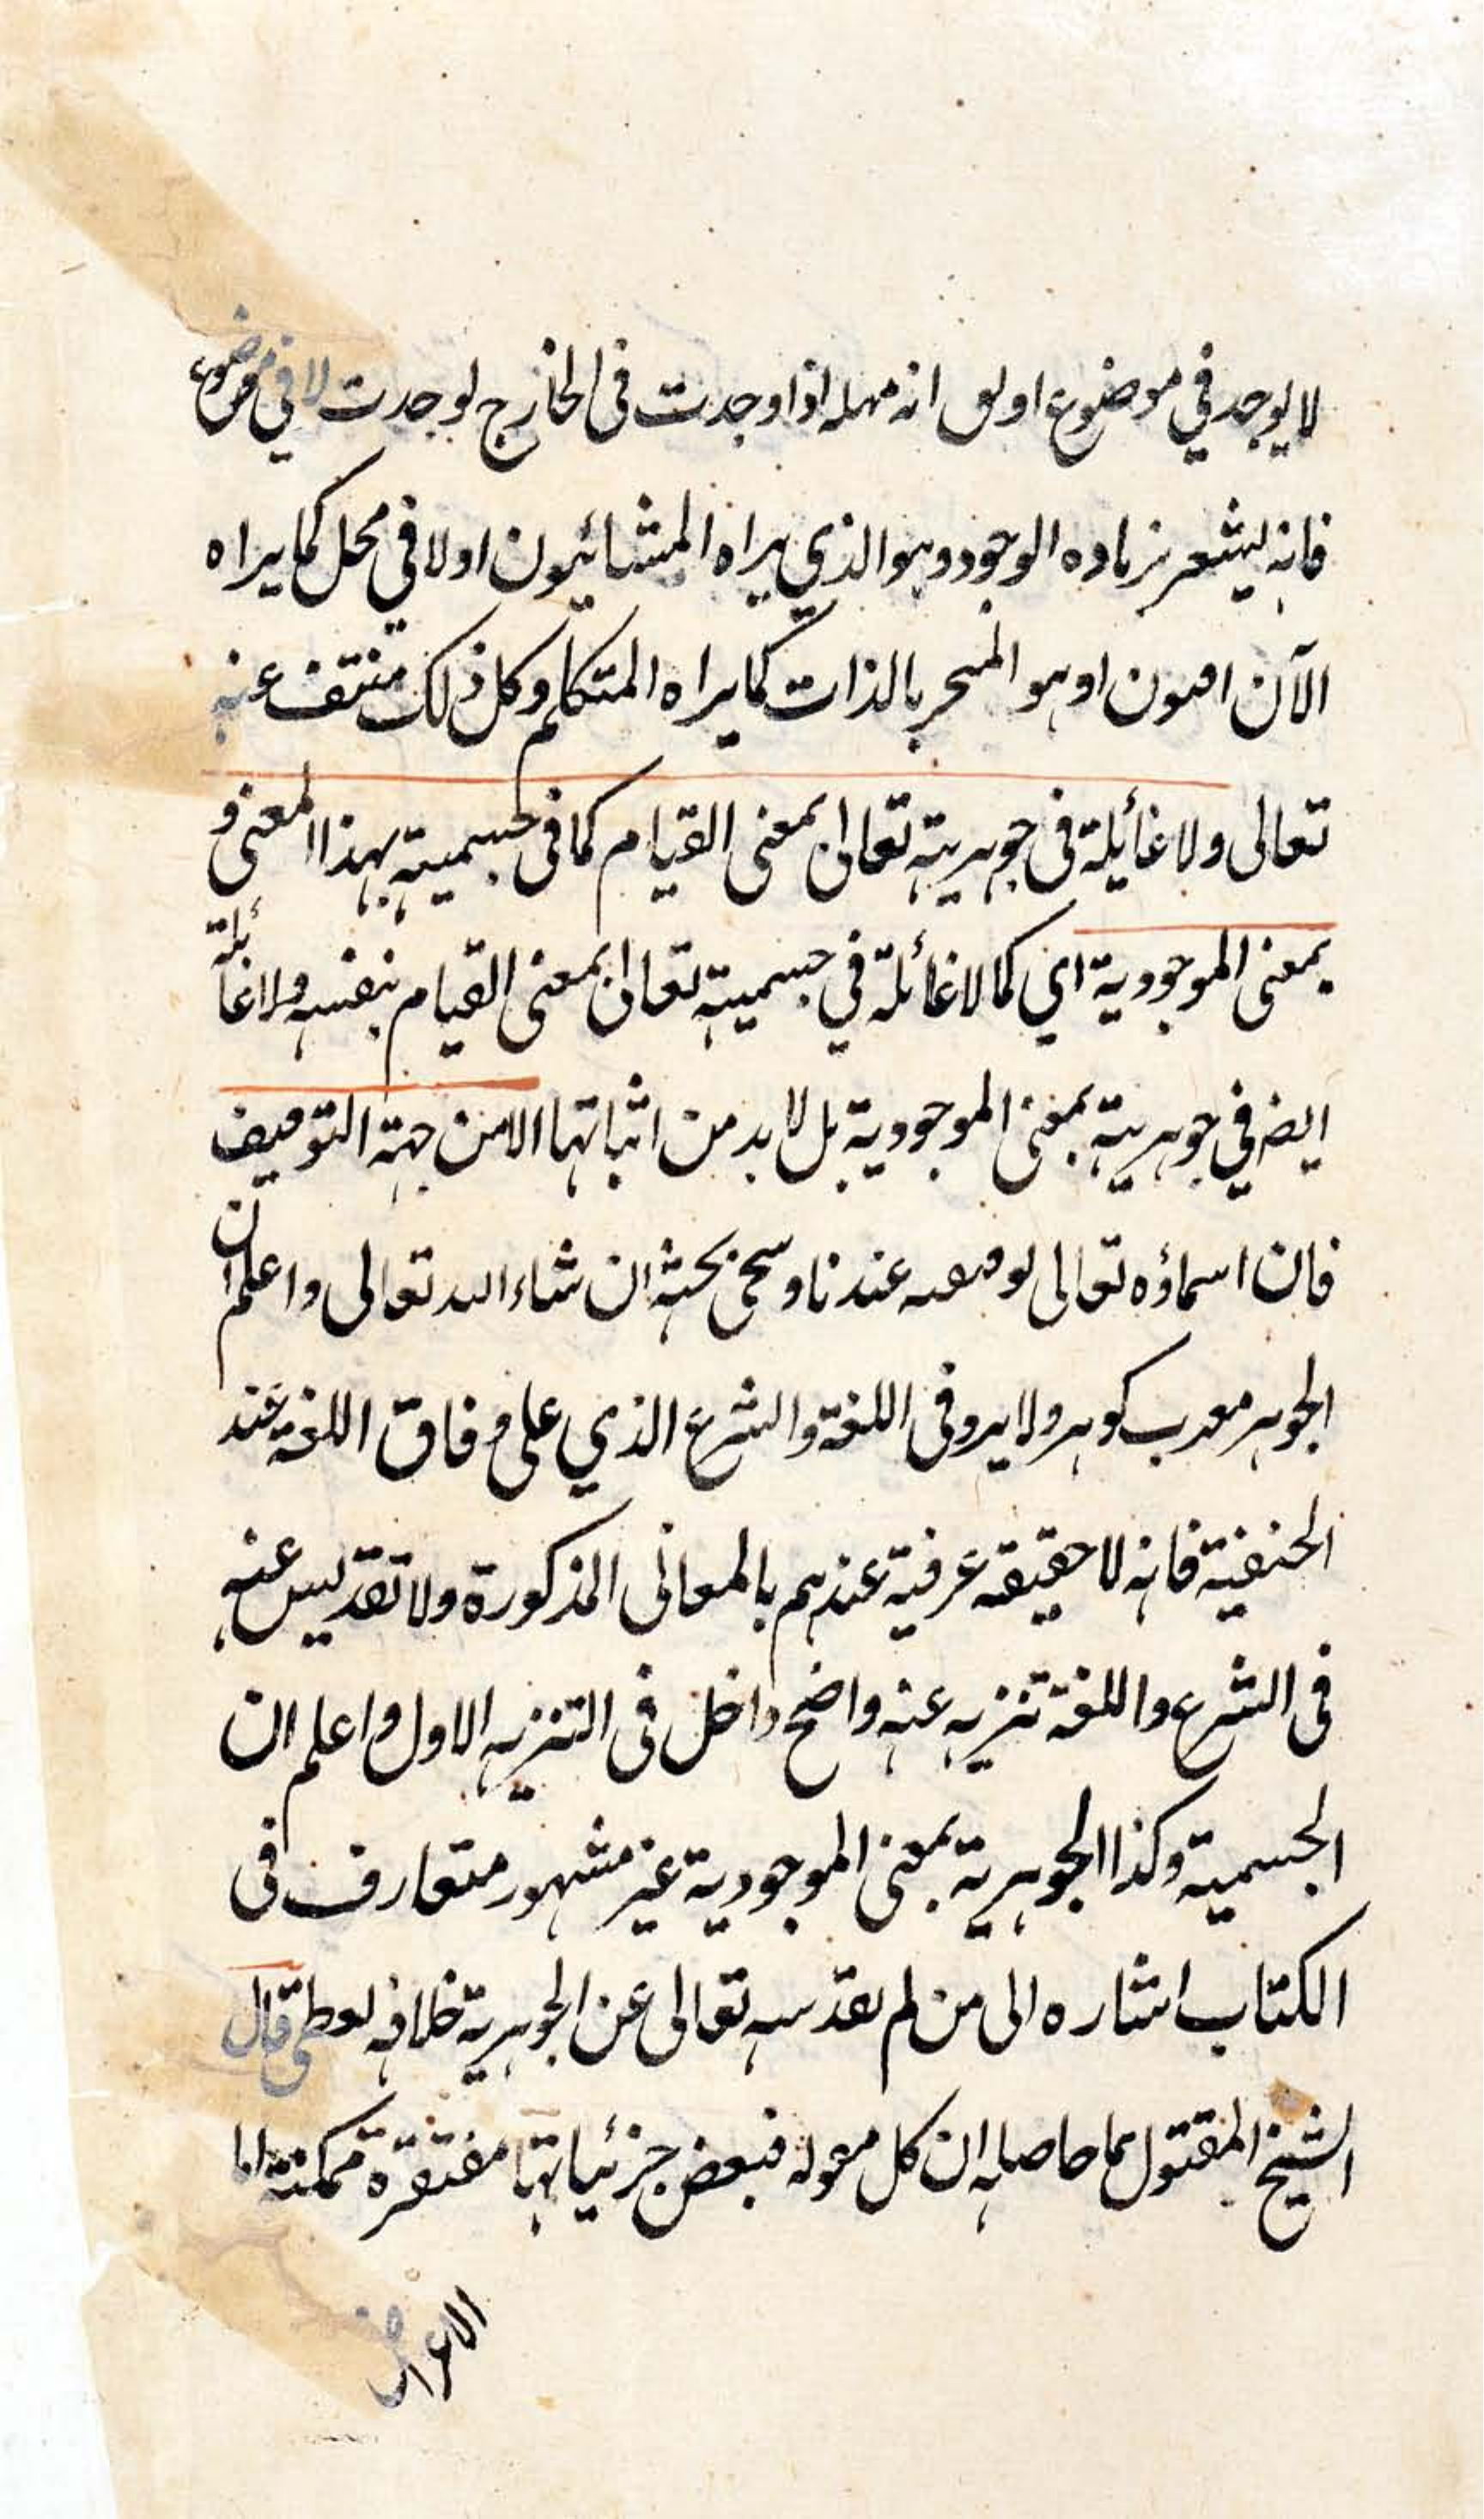 لا يوجد في موضوع او انه مهله اذا وجدت فى الخارج لوجدت لا في موضوع
فانه يشعر بزياده الوجود وهو الذي يراه المشائيون او لا في محل كما يراه
الآن او هو المتحيز بالذات كما يراه المتكلم وكل ذلك منتف عنه
تعالى ولا غائيلة فى جوهريته تعالى بمعنى القيام كما فى جسميته بهذا المعنى و
بمعنى الموجودية اي كما لا غائلة في جسميته تعالى بمعنى القيام بنفسه ولا غائلة
ايضه في جوهريته بمعنى الموجودية بل لا بد من اثباتها الا من جهة التوقيف
فان اسماؤه تعالى توقيفيه عندنا وسيجئ بحثه ان شاء الله تعالى واعلم ان
الجوهر معرب كوهر ولا يرو فى اللغة والشرع الذي على وفاق اللغة عند
الحنفية فانه لا حقيقه عرفية عندهم بالمعانى المذكورة ولا تقديس عنه
فى الشرع واللغة تنزيه عنه واضح داخل فى التنزيه الاول واعلم ان
الجسمية وكذا الجوهرية بمعنى الموجودية غير مشهور متعارف فى
الكتاب اشاره الى من لم يقدسه تعالى عن الجوهرية خلافه لفظى قال
الشيخ المقتول بما حاصله ان كل مقوله فبعض جزئياتها مفتقرة ممكنة اما
الاعراض